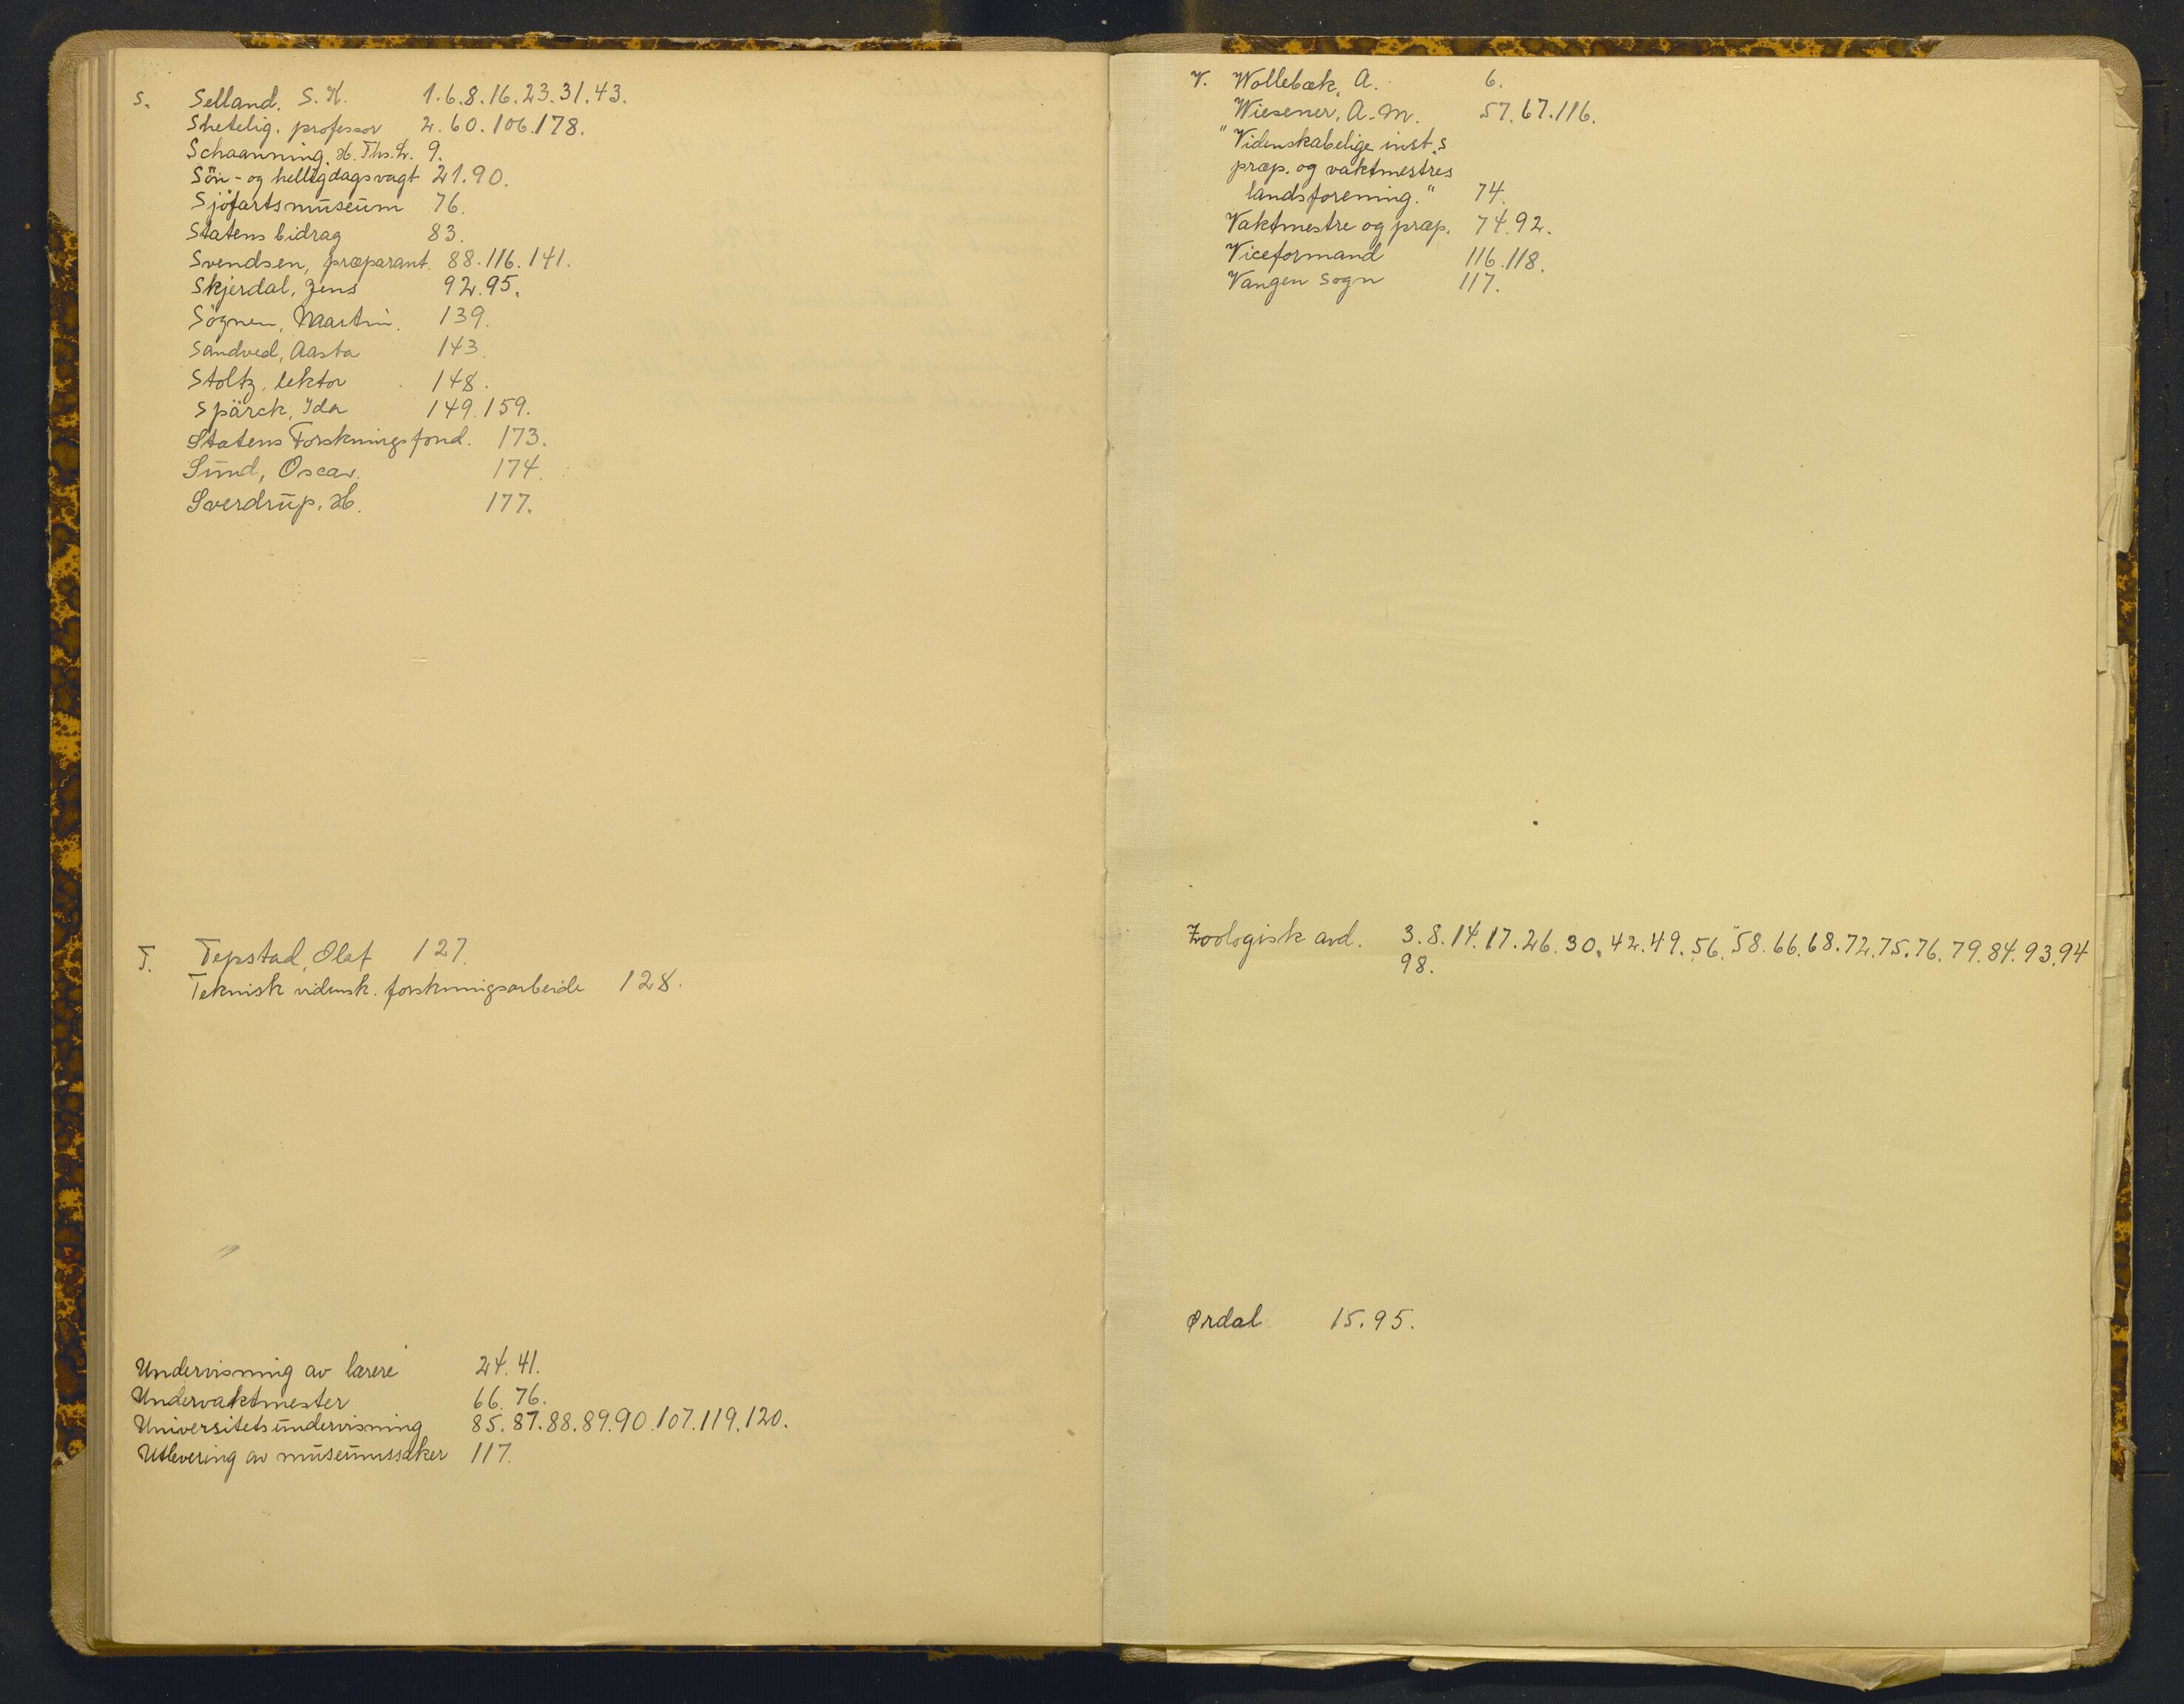 S. Selland. S. K. 1.6.8.16.23.31.43.
Shetelig. professor 2.60.106.178.
Schaanning. H. Ths. L. 9.
Sön- og helligdagsvagt 21.90.
Sjöfartsmuseum 76.
Statens bidrag 83.
Svendsen, præparant. 88.116.141.
Skjerdal, Jens 92.95.
Sögnen, Martin. 139.
Sandved, Aasta 143.
Stoltz. lektor 148.
Spärck, Ida 149.159.
Statens Forskningsfond. 173.
Sund, Oscar. 174.
Sverdrup. H. 177.
T. Tepstad, Olaf 127.
Teknisk vidensk. forskningsarbeide 128.
Undervisning av lærere 24.41.
Undervaktmester 66.76.
Universitetsundervisning 85.87.88.89.90.107.119.120.
Utlevering av museumssaker 117.
V. Wollebæk, A. 6.
Wiesener, A. M. 57.67.116.
"Videnskabelige inst.s
præp. og vaktmestres
landsforening." 74.
Vaktmestre og præp. 74.92.
Viceformand 116.118.
Vangen Sogn 117.
Zoologisk avd. 3.8.14.17.26.30.42.49.56.58.66.68.72.75.76.79.84.93.94
98.
Ørdal 15.95.